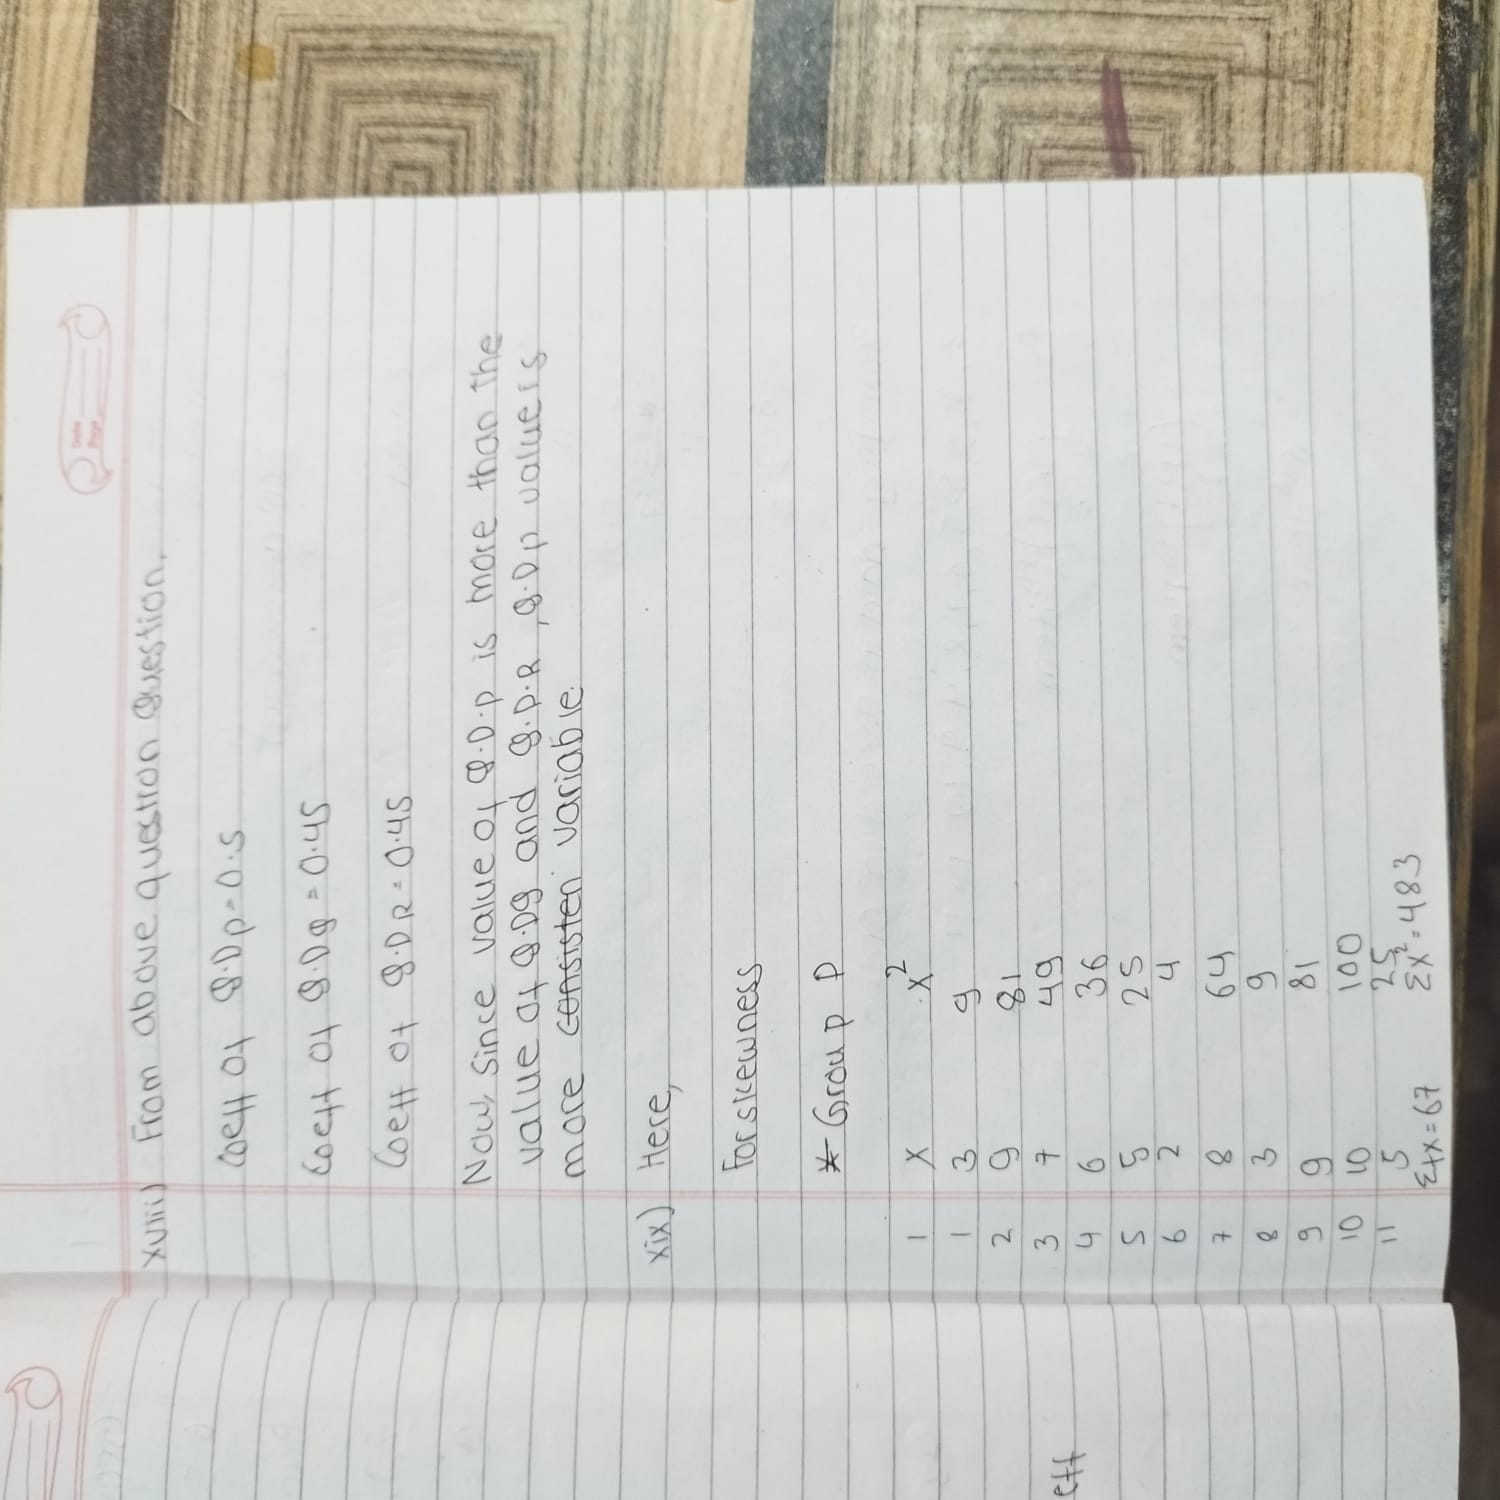 Date
Page
xviii) From above question Question,
Coeff of Q.D P = 0.5
Coeff of Q.D Q = 0.45
Coeff of Q.D R = 0.45
Now, since value of Q.D.P is more than the
value of Q.D Q and Q.D.R, Q.D P value is
more consisten variable.
xix) Here,
For skewness
* Group P
1 X X²
1 3 9
2 9 81
3 7 49
4 6 36
5 5 25
6 2 4
7 8 64
8 3 9
9 9 81
10 10 100
11 5 25
Σfx = 67 Σx² = 483
eff